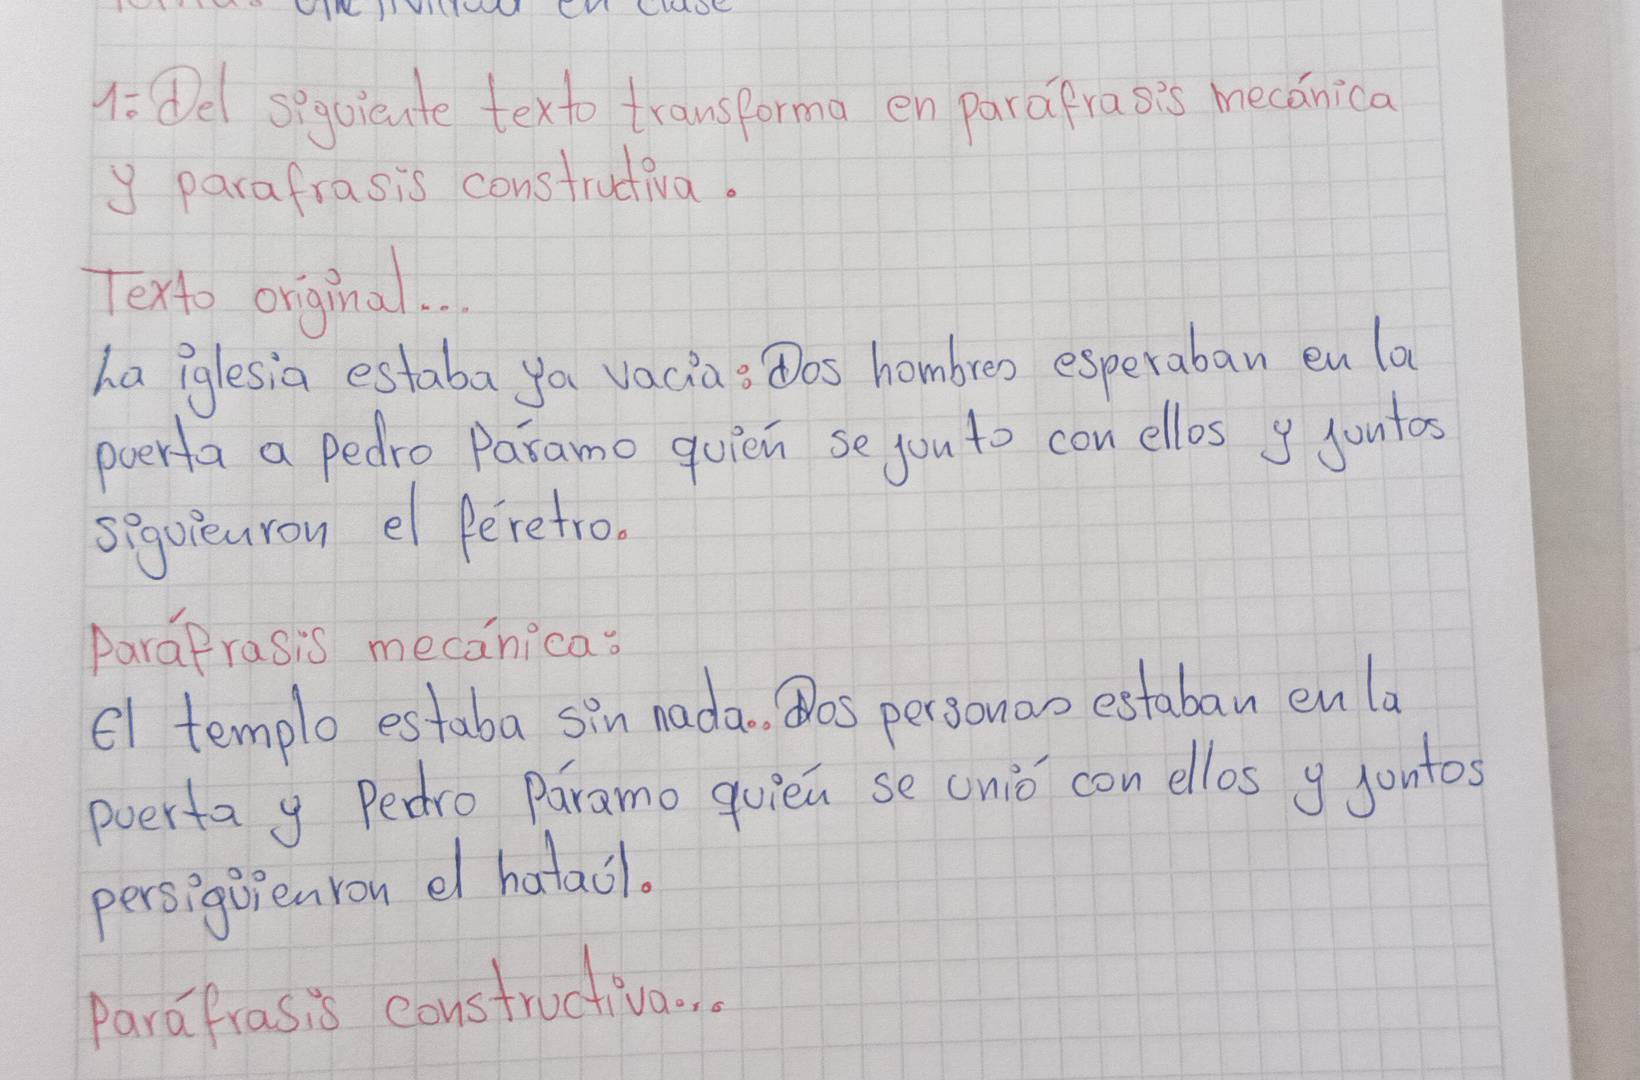 en clase
1: Del siguiente texto transforma en paráfrasis mecánica
y parafrasis constructiva.
Texto original...
La iglesia estaba ya vacia: Dos hombres esperaban en la
puerta a pedro Páramo quién se junto con ellos y juntos
siguieuron el féretro.
Paráfrasis mecánica:
El templo estaba sin nada.. Dos personas estaban en la
puerta y Pedro Páramo quién se unió con ellos y juntos
persigüienron el hataúl.
Paráfrasis constructiva...